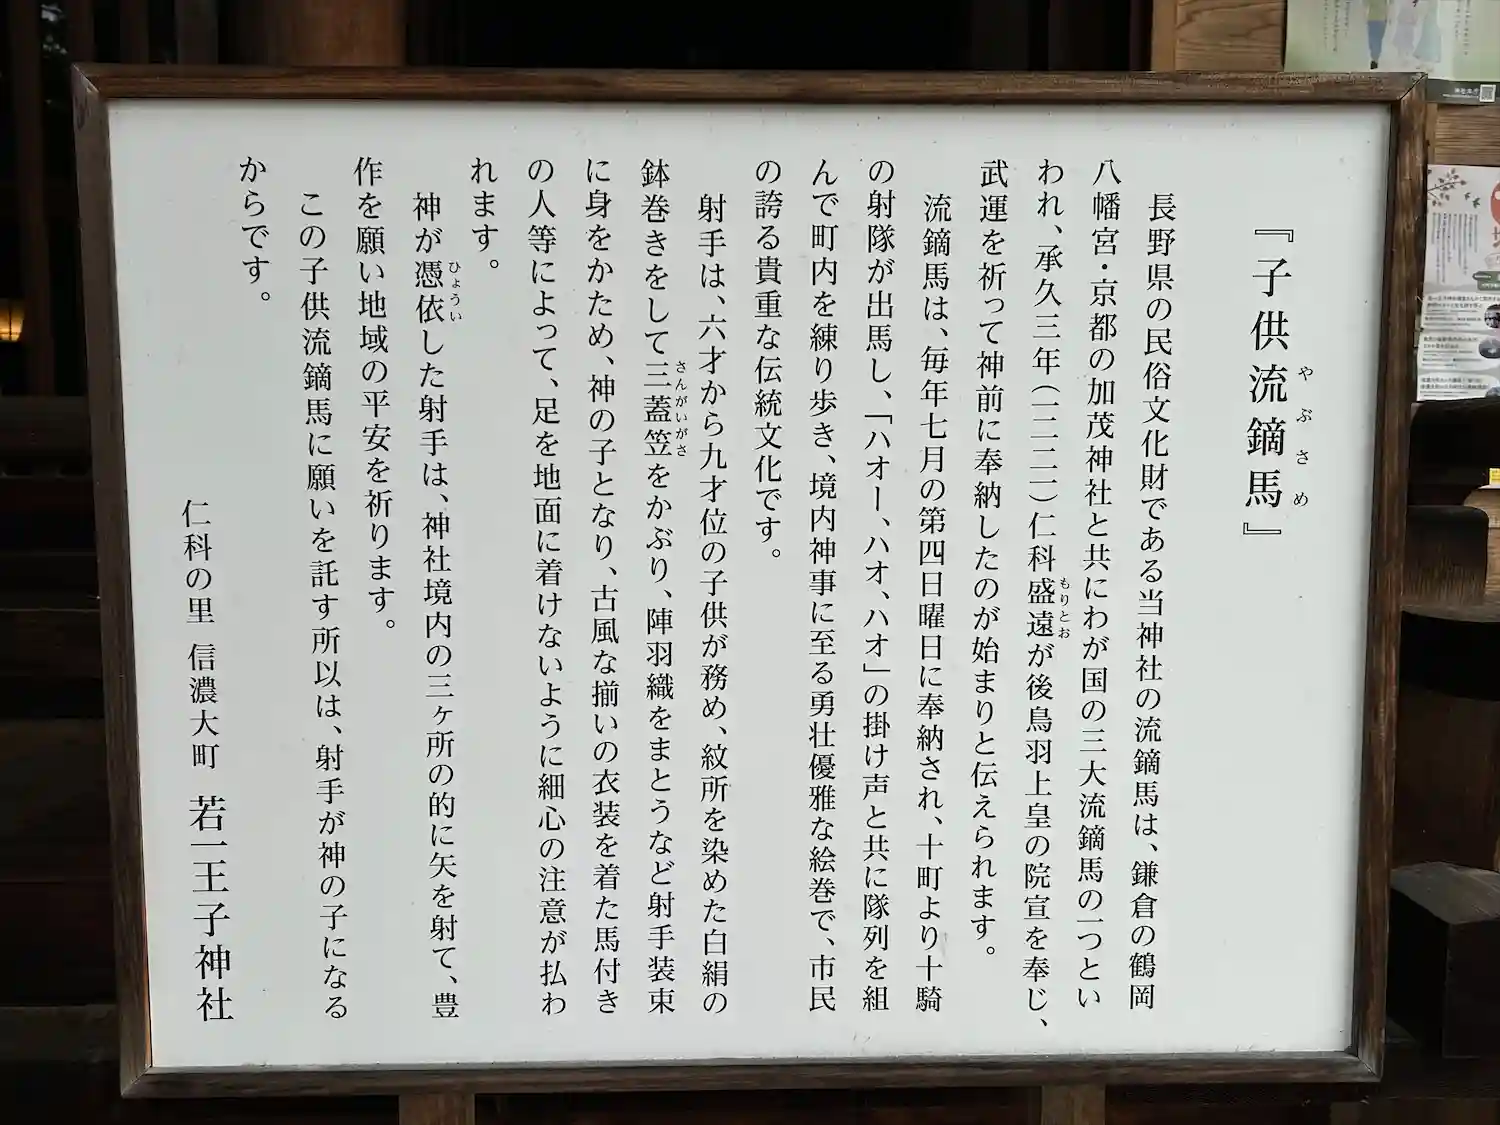 『子供流鏑馬』
やぶさめ
長野県の民俗文化財である当神社の流鏑馬は、鎌倉の鶴岡
八幡宮・京都の加茂神社と共にわが国の三大流鏑馬の一つとい
われ、承久三年(一二二一)仁科盛遠が後鳥羽上皇の院宣を奉じ、
もりとお
武運を祈って神前に奉納したのが始まりと伝えられます。
流鏑馬は、毎年七月の第四日曜日に奉納され、十町より十騎
の射隊が出馬し、「ハオー、ハオ、ハオ」の掛け声と共に隊列を組
んで町内を練り歩き、境内神事に至る勇壮優雅な絵巻で、市民
の誇る貴重な伝統文化です。
射手は、六才から九才位の子供が務め、紋所を染めた白絹の
鉢巻きをして三蓋笠をかぶり、陣羽織をまとうなど射手装束
さんがいがさ
に身をかため、神の子となり、古風な揃いの衣装を着た馬付き
の人等によって、足を地面に着けないように細心の注意が払わ
れます。
神が憑依した射手は、神社境内の三ヶ所の的に矢を射て、豊
ひょうい
作を願い地域の平安を祈ります。
この子供流鏑馬に願いを託す所以は、射手が神の子になる
からです。
仁科の里 信濃大町 若一王子神社